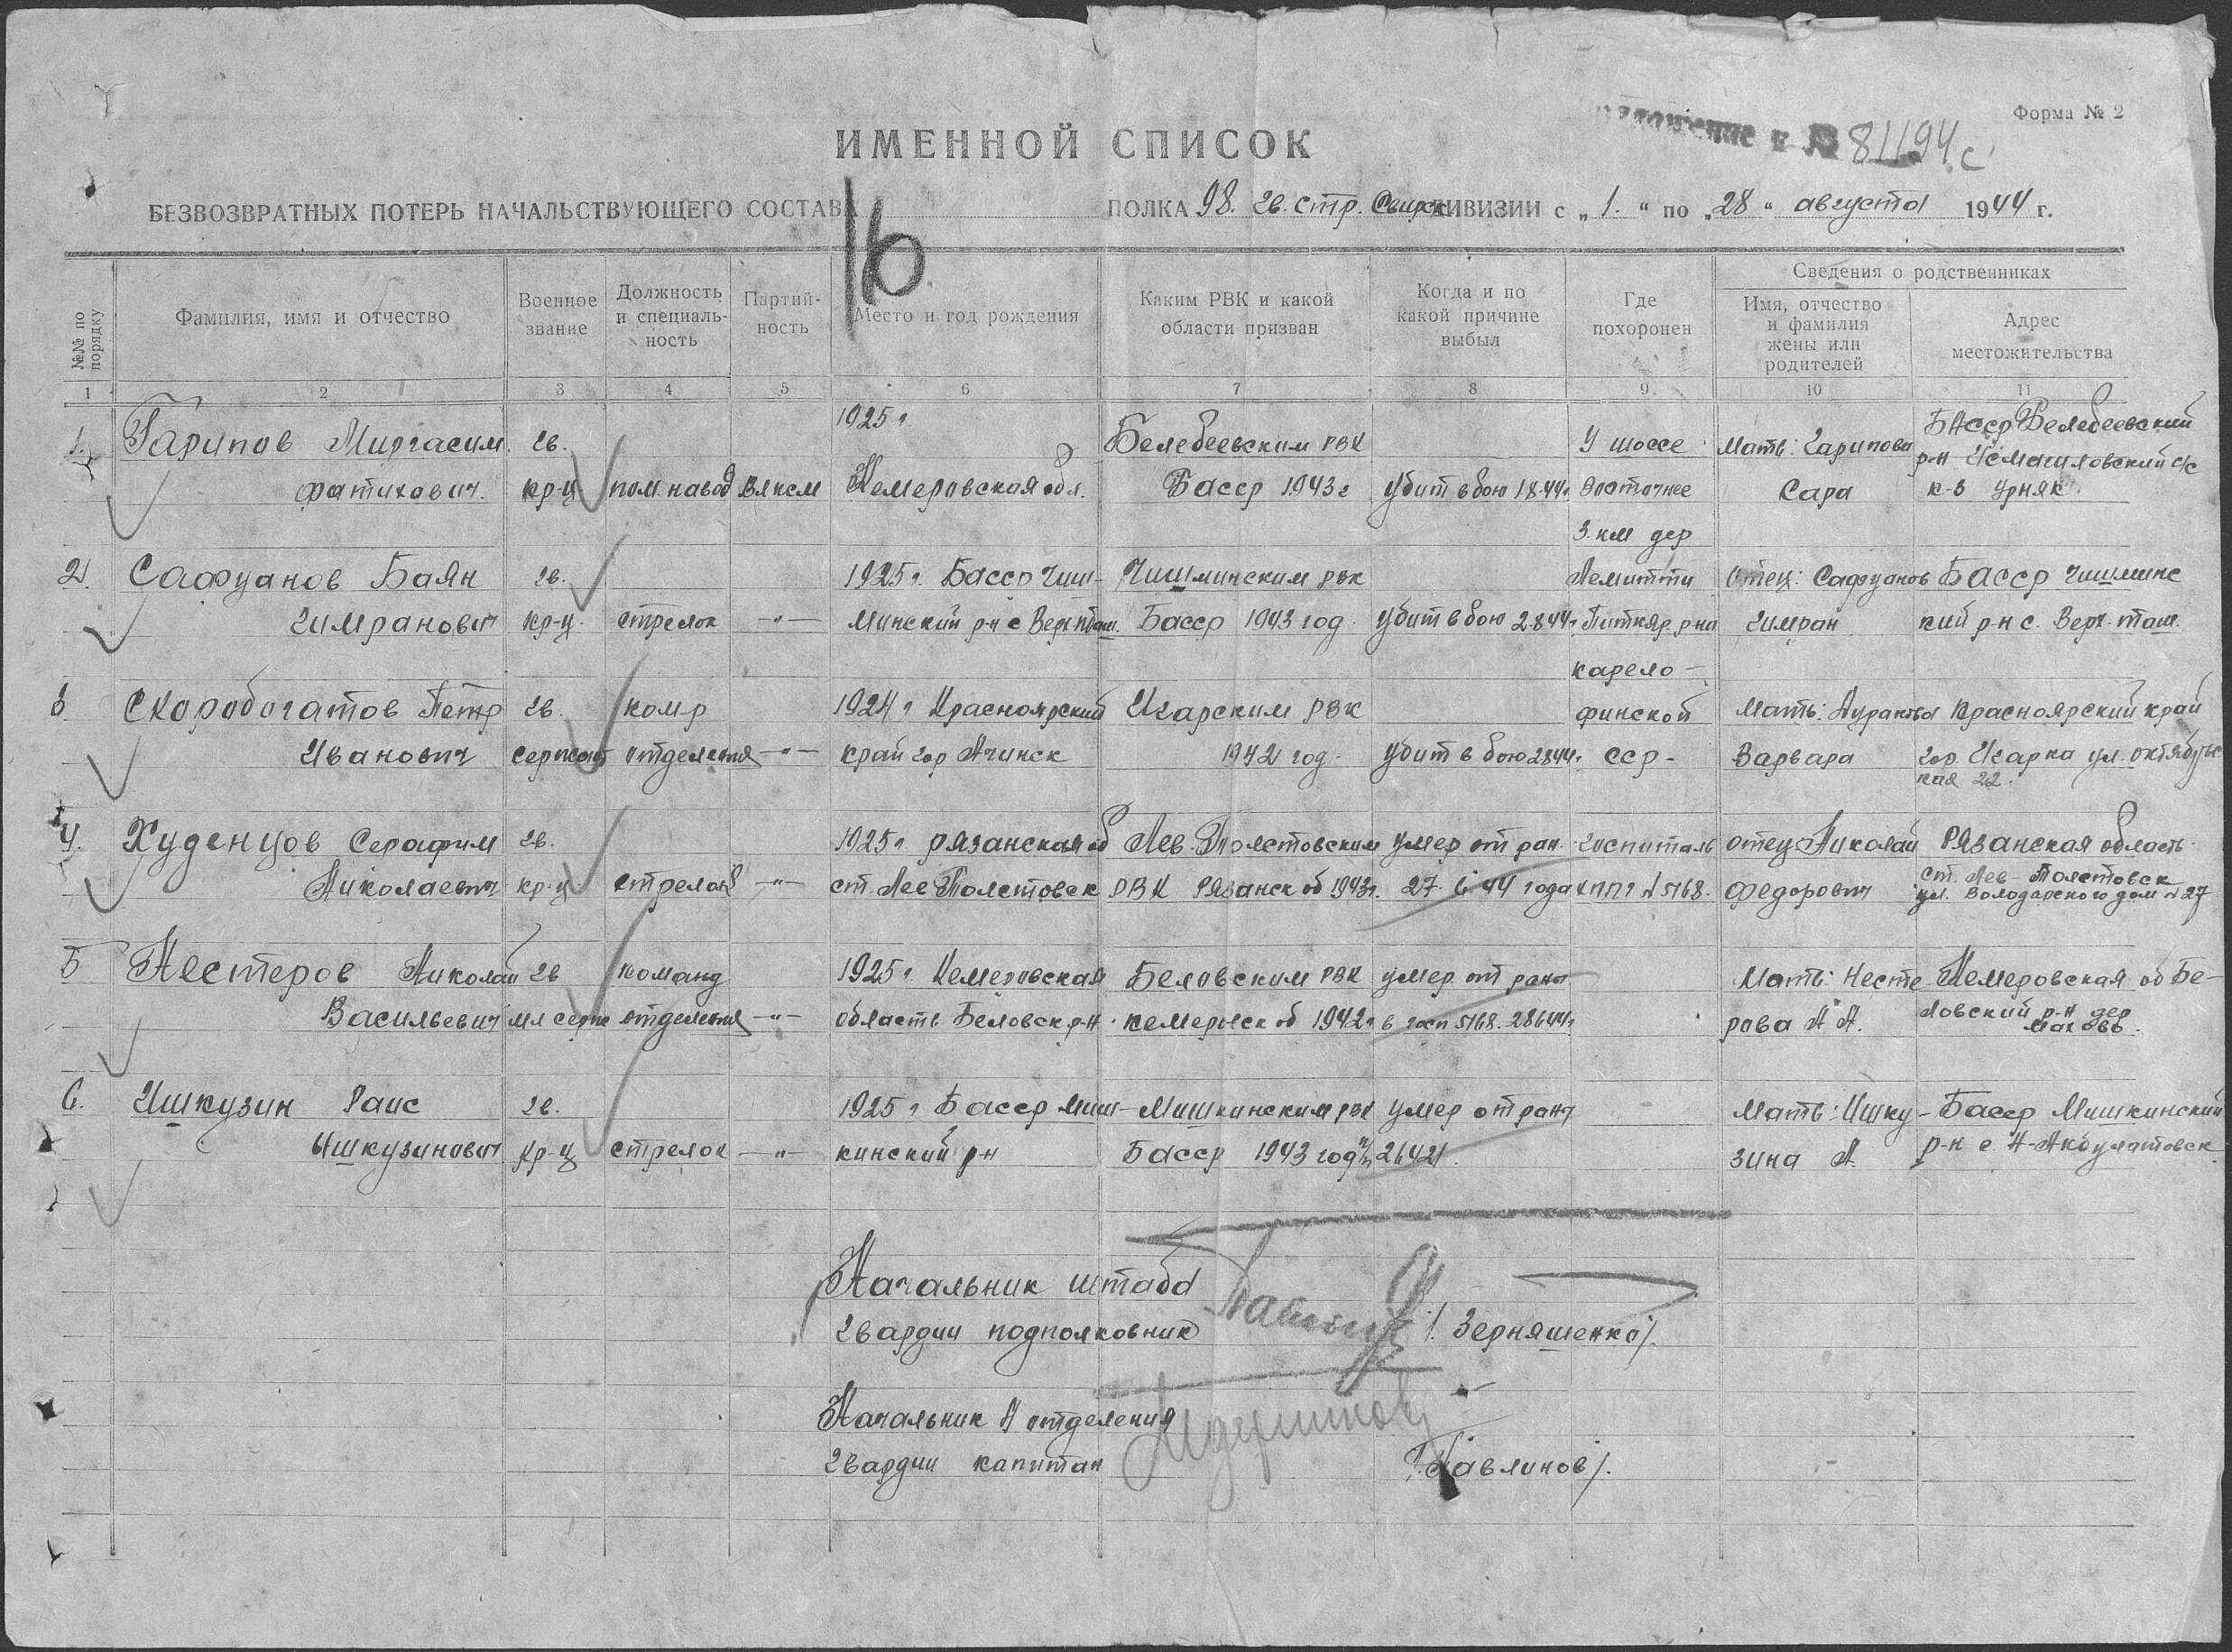 Форма № 2
81194с
ИМЕННОЙ СПИСОК
16
БЕЗВОЗВРАТНЫХ ПОТЕРЬ НАЧАЛЬСТВУЮЩЕГО СОСТАВА ПОЛКА 98. гв. стр. Свирск ДИВИЗИИ с „1.“ по „28“ августа 1944 г.
№№ по порядку
Фамилия, имя и отчество
Военное звание
Должность и специальность
Партийность
Место и год рождения
Каким РВК и какой области призван
Когда и по какой причине выбыл
Где похоронен
Сведения о родственниках
Имя, отчество и фамилия жены или родителей
Адрес местожительства
1 2 3 4 5 6 7 8 9 10 11
1. Гарипов Миргасим гв. 1925г Белебеевским РВК У шоссе Мать: Гарипова БАССР Белебеевский
р-н с/с
Фатихович. кр-ц пом навод ВЛКСМ Кемеровская обл. Басср 1943г убит в бою 1.8.44г восточнее Сара к-з Урняк.
3. км дер
2. Сафуанов Баян гв. 1925г. Басср Чиш- Чишминским РВК Лемитти Отец: Сафуанов Басср Чишминс
Гимранович кр-ц. стрелок —"— минский р-н с Верх таш. Басср 1943 год. убит в бою 2.8.44г. Питкяр. р-на Гимран кий р-н с. Верх. таш.
карело-
3 Скоробогатов Петр гв. ком-р 1924г Красноярский Игарским РВК финской Мать: Красноярский край
Иванович сержант отделения —"— край гор Ачинск 1942 год. убит в бою 2.8.44г. сср- Варвара гор. Игарка ул. октябрьс
кая 22.
4. Худенцов Серафим гв. 1925г. Рязанская об Лев-Толстовским умер от ран. госпиталь отец Николай Рязанская область.
Николаевич кр-ц стрелок —"— ст. Лев Толстовск РВК Рязанск об 1943г. 27. 6. 44 года хппг N 5168. Федорович ст. Лев-Толстовск
ул. Володарского дом N 27
5 Нестеров Николай гв команд 1925г. Кемеровская Беловским РВК умер от ран Мать: Несте Кемеровская об Бе-
Васильевич мл серж отделения —"— область Беловск р-н Кемеровск об 1942г в госп 5168. 28.6.44г. рова А. ловский р-н дер
6. Ишкузин Раис гв. 1925г Басср Миш- Мишкинским РВК умер от ран Мать: Ишку- Басср Мишкинский
Ишкузинович кр-ц стрелок —"— кинский р-н Басср 1943 год 2642. зина А. р-н с Н-Акбулатовск
Начальник штаба
гвардии подполковник /. Зерняшенко/.
Начальник 4 отделения
гвардии капитан /Павлинов/.